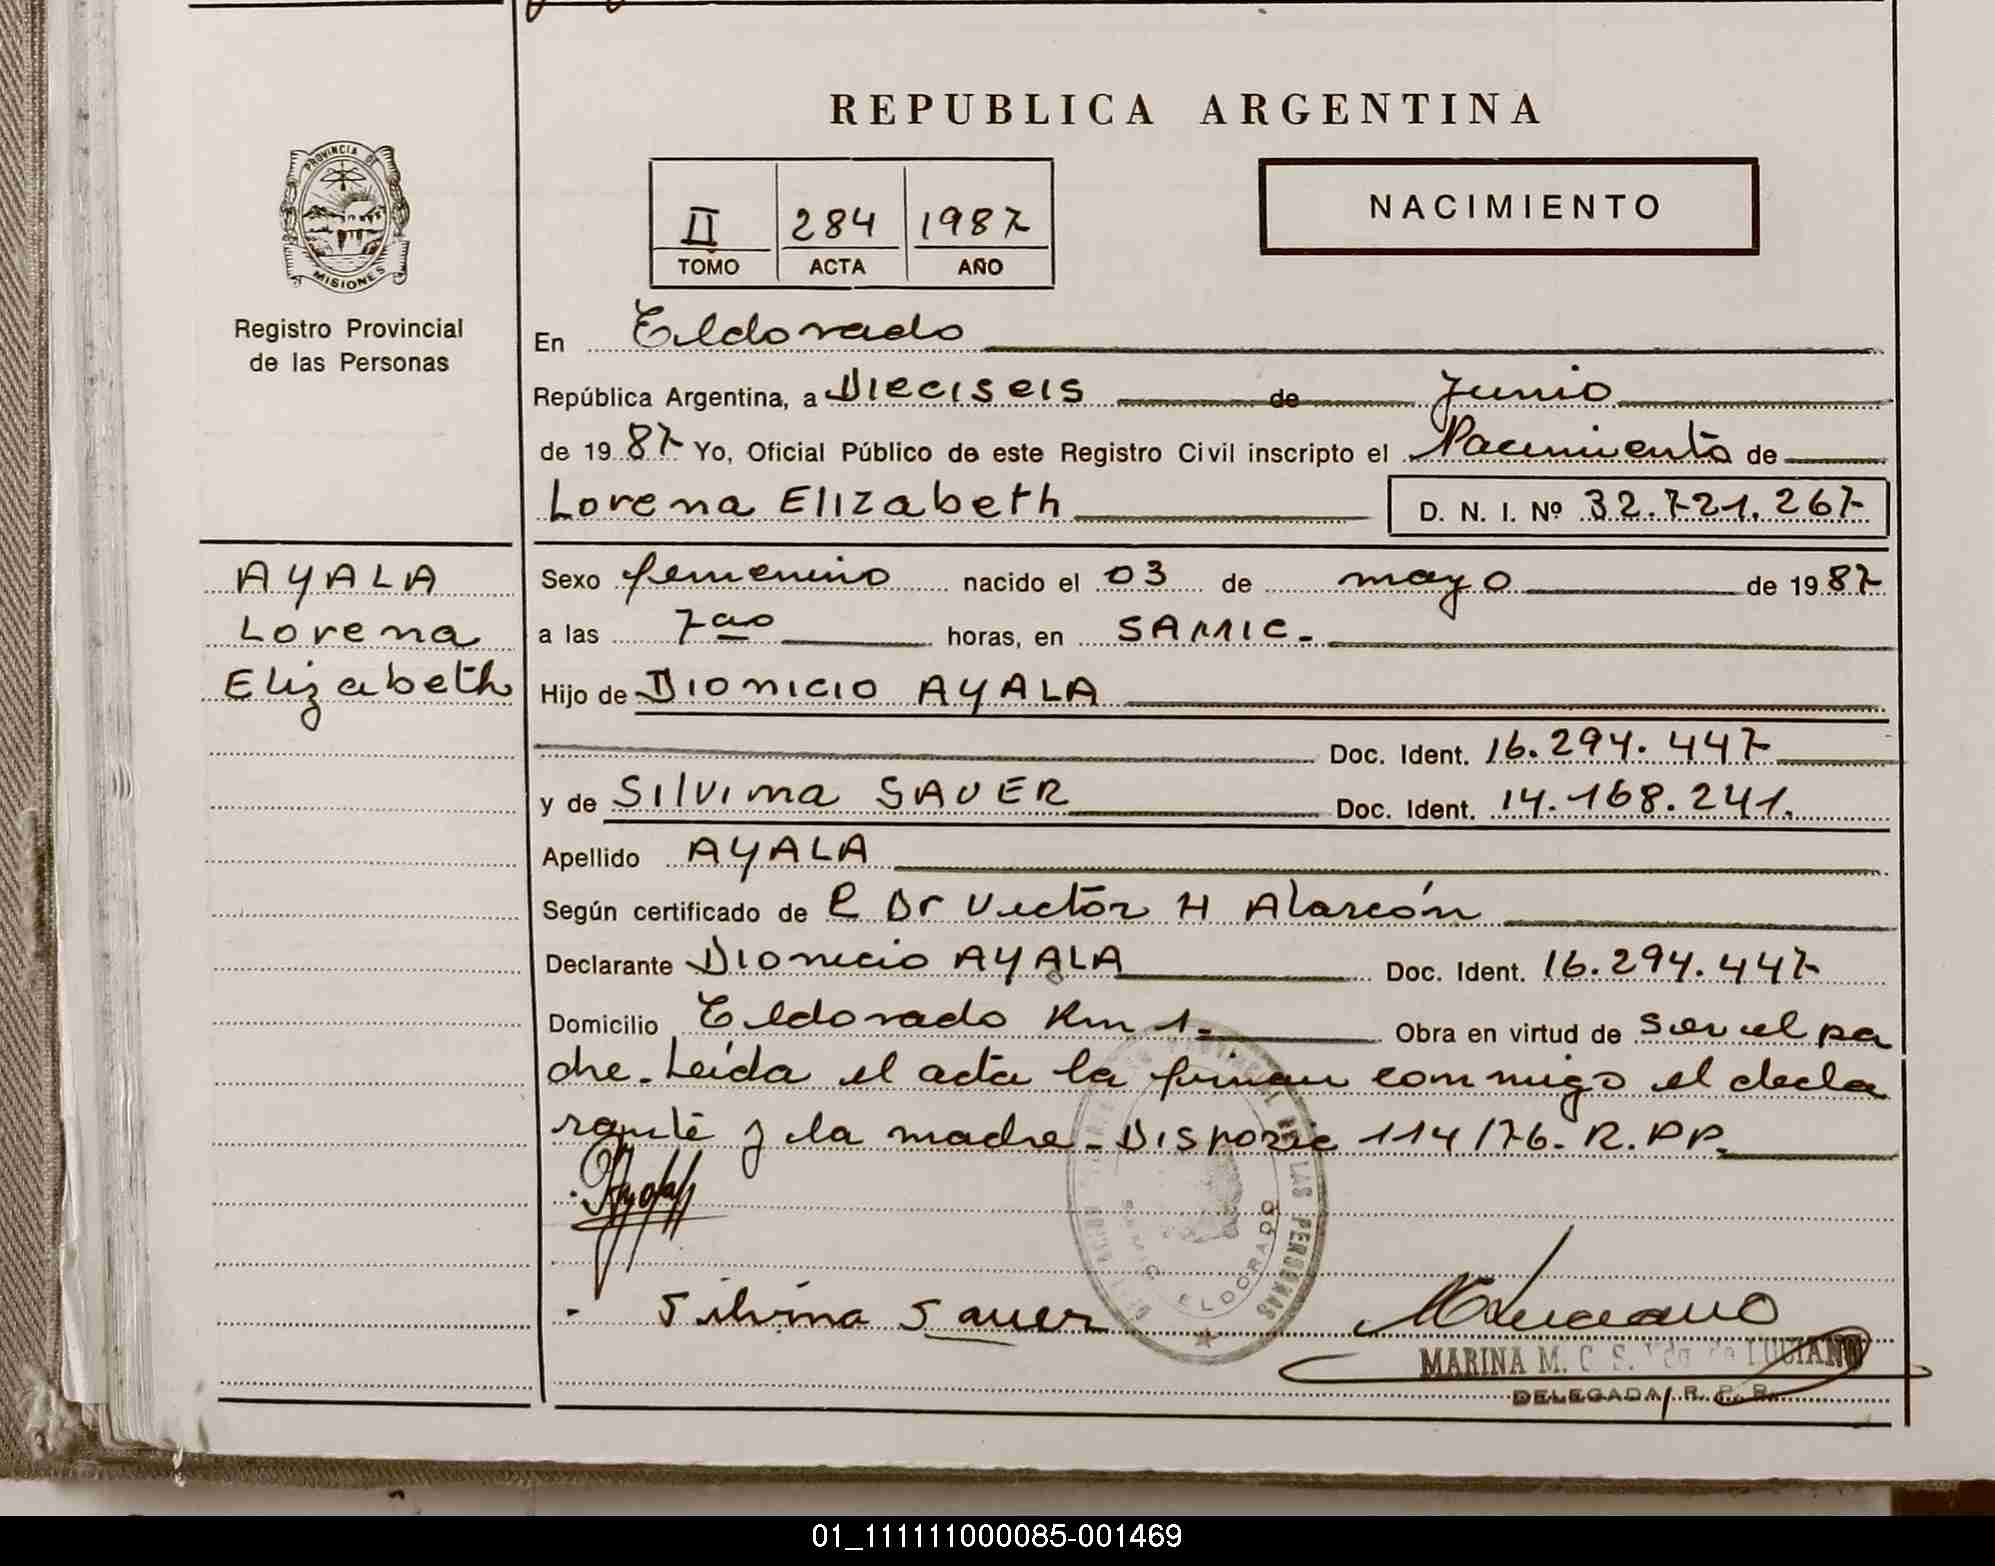 REPUBLICA ARGENTINA
PROVINCIA DE
MISIONES
Registro Provincial
de las Personas
II 284 1987
TOMO ACTA AÑO
NACIMIENTO
En Eldorado
República Argentina, a Dieciseis de Junio
de 1987 Yo, Oficial Público de este Registro Civil inscripto el Nacimiento de
Lorena Elizabeth D. N. I. Nº 32.721.267
AYALA
Lorena
Elizabeth
Sexo femenino nacido el 03 de mayo de 1987
a las 7ao horas, en SAMIC.
Hijo de Dionicio AYALA
Doc. Ident. 16.294.447
y de Silvina SAUER Doc. Ident. 14.168.241.
Apellido AYALA
Según certificado de Dr Victor H Alarcón
Declarante Dionicio AYALA Doc. Ident. 16.294.447
Domicilio Eldorado Km 1. Obra en virtud de ser el pa
dre. Leída el acta la firman conmigo el decla
rante y la madre. Disposic 114/76. R.PP.
LAS PERSONAS
SAMIC ELDORADO
Silvina Sauer
MARINA M. C. S. Vda de LUCIANO
DELEGADA R. P. P.
01_111111000085-001469